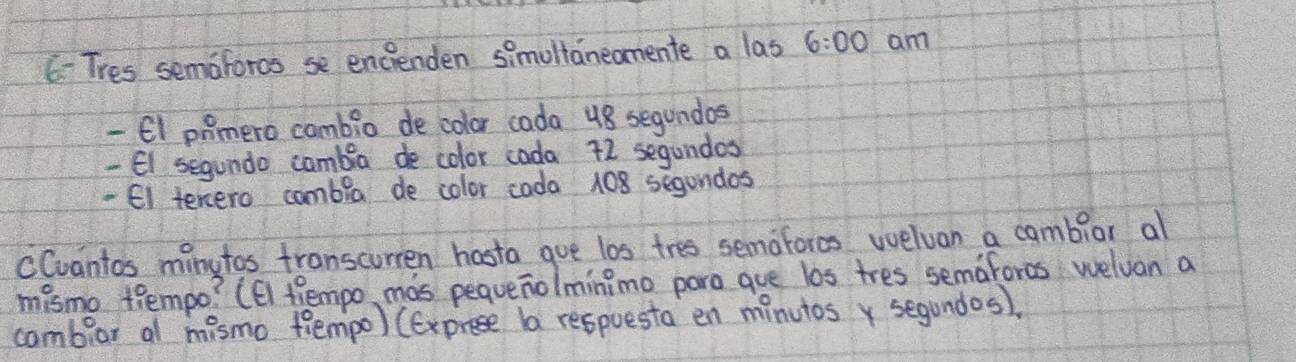 6- Tres semáforos se encienden simultáneamente a las 6:00 am
- El primero cambio de color cada 48 segundos
- El segundo cambia de color cada 72 segundos
- El tercero cambia de color cada 108 segundos
¿Cuántos minutos transcurren hasta que los tres semáforos vuelvan a cambiar al
mismo tiempo? (El tiempo más pequeño/mínimo para que los tres semáforos vuelvan a
cambiar al mismo tiempo) (Exprese la respuesta en minutos y segundos).